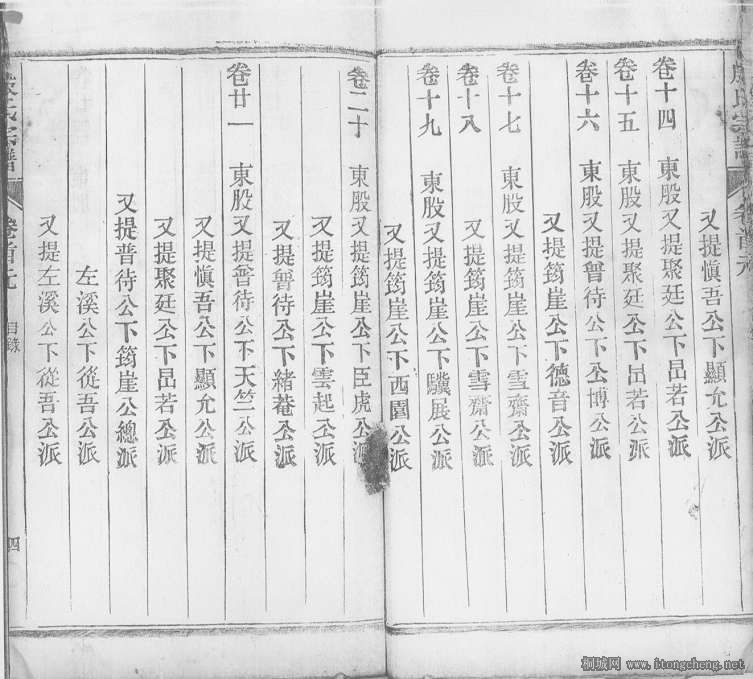 又提慎吾公下顯允公派
卷十四 東股又提聚廷公下昂若公派
卷十五 東股又提聚廷公下昂若公派
卷十六 東股又提魯待公下公博公派
又提筠崖公下德音公派
卷十七 東股又提筠崖公下雪齋公派
卷十八 又提筠崖公下雪齋公派
卷十九 東股又提筠崖公下驥展公派
又提筠崖公下西園公派
卷二十 東股又提筠崖公下臣虎公派
又提筠崖公下雲起公派
又提魯待公下緒菴公派
卷廿一 東股又提魯待公下天竺公派
又提慎吾公下顯允公派
又提聚廷公下昂若公派
又提普待公下筠崖公總派
左溪公下從吾公派
又提左溪公下從吾公派
氏宗譜 卷首元 目錄 四
桐城网 www.itongcheng.net